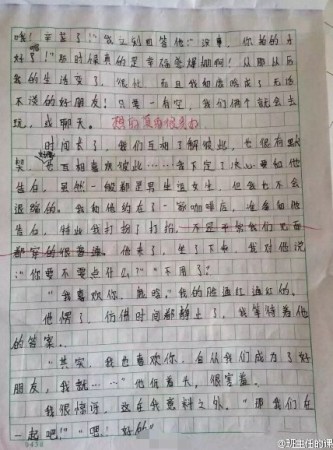 哦！辛苦了！"我立刻回答他"没事，你真的太
好了！"那时候真的是幸福爱爆棚啊！从那以后
我的生活变了，很忙，而且我和他成了无话
不谈的好朋友！只要一有空，我们俩个就会去
玩，或聊天。
时间长了，我们互相了解彼此，也很有默
契，也互相喜欢彼此……我下定了决心要和他
告白，虽然一般都是男生追女生，但我也不会
退缩的。我和他约在了一家咖啡店，准备和他
告白，特此我打扮了打扮，不是平常我们见面
都穿的很普通。他来了，坐了下来，我对他说
："你要不要点什么？""不用了。"
"我喜欢你，
我的脸通红通红的。
他愣了，仿佛时间都静止了，我等待着他
的答案。
"其实，我也喜欢你，自从我们成为了好
朋友，我就……"他低着头，很害羞。
我很惊讶，这在我意料之外，"那我们在
一起吧！""嗯！好的"
@班主任的课